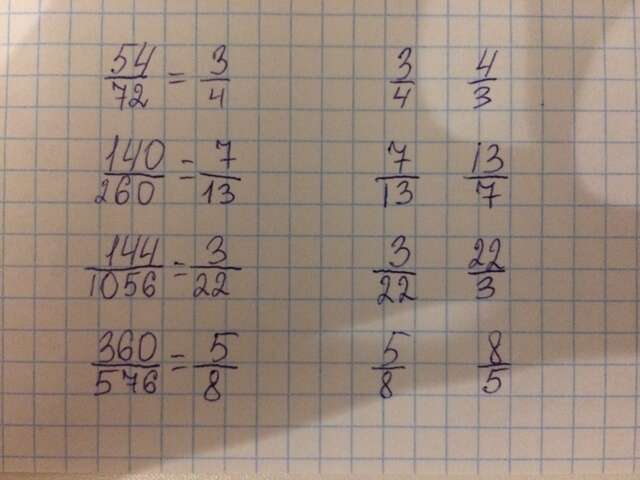 54/72 = 3/4 3/4 4/3
140/260 = 7/13 7/13 13/7
144/1056 = 3/22 3/22 22/3
360/576 = 5/8 5/8 8/5